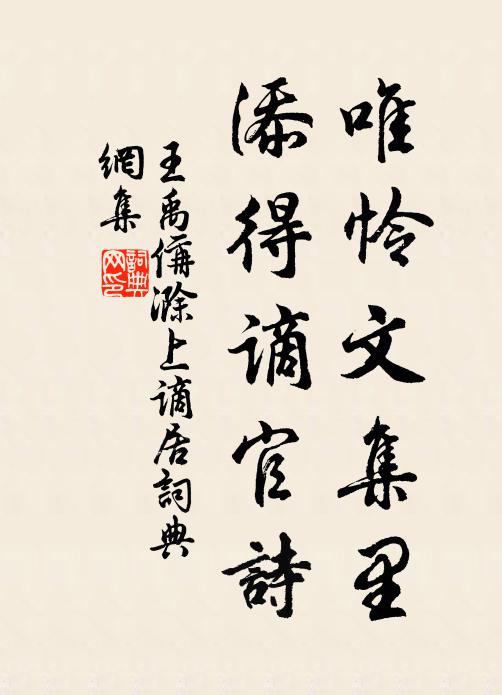 唯怜文集里
添得谪官詩
王禹偁滁上谪居詞典
網集
詞典
网印